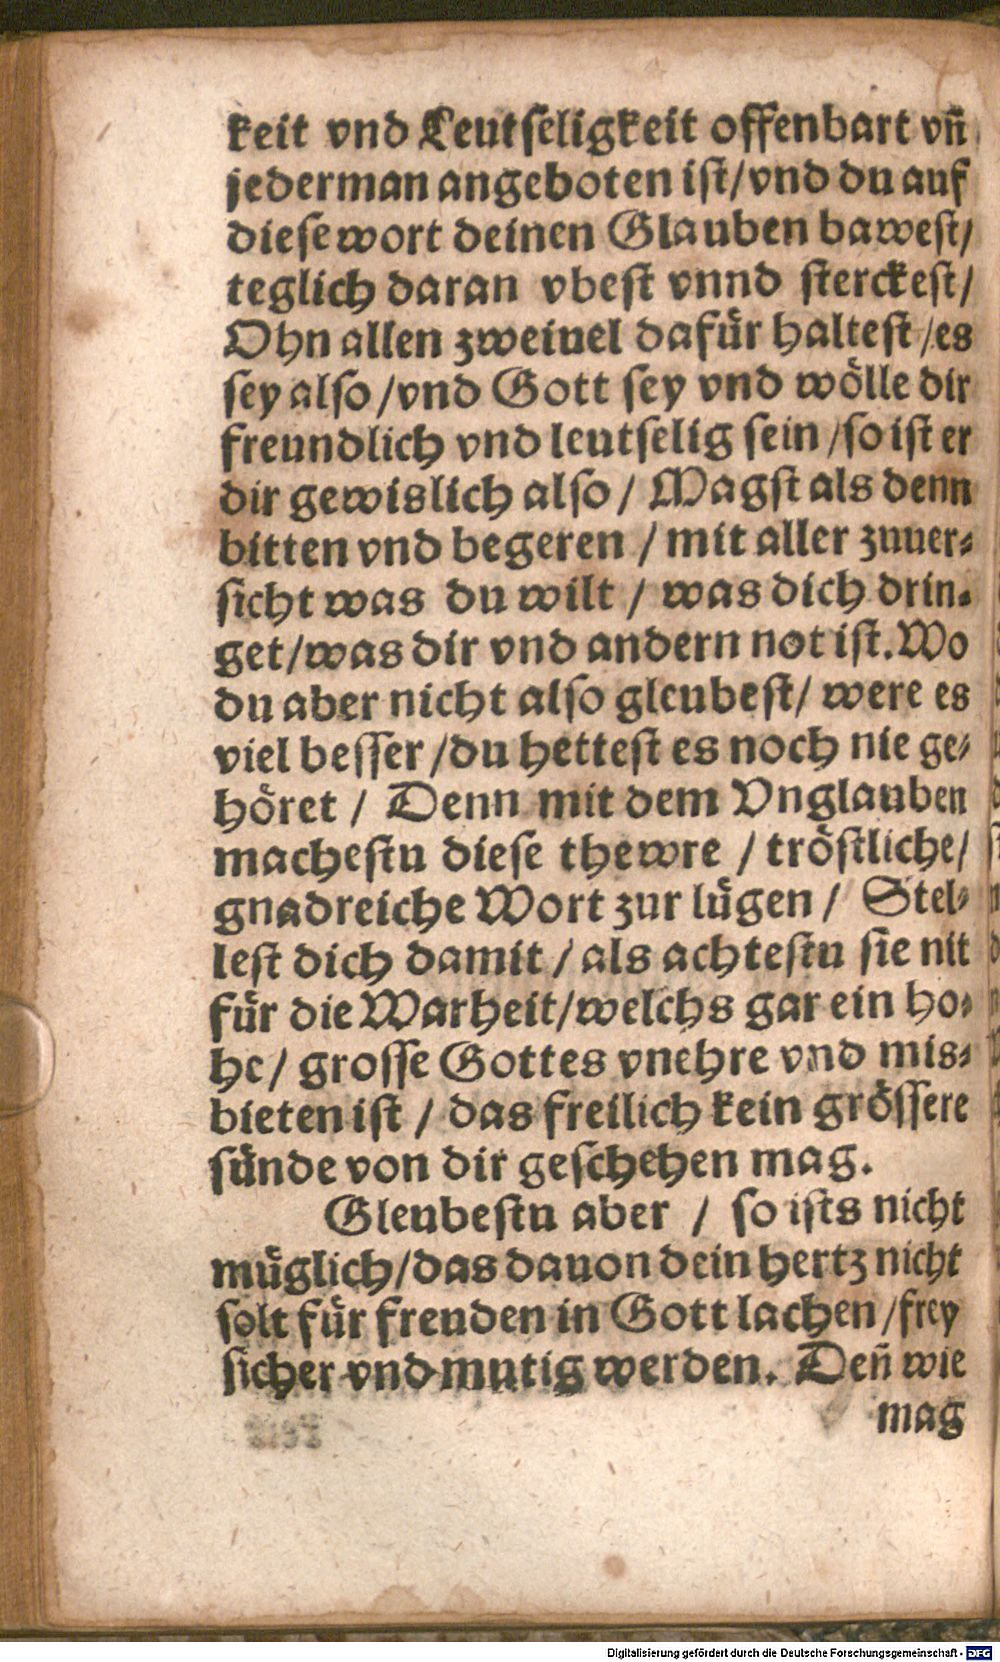 keit vnd Leutseligkeit offenbart vn̄
jederman angeboten ist/vnd du auf
diese wort deinen Glauben bawest/
teglich daran vbest vnnd sterckest/
Ohn allen zweiuel dafür haltest/es
sey also/vnd Gott sey vnd wölle dir
freundlich vnd leutselig sein/so ist er
dir gewislich also/ Magst als denn
bitten vnd begeren/mit aller zuuer⸗
sicht was du wilt/ was dich drin⸗
get/was dir vnd andern not ist. Wo
du aber nicht also gleubest/ were es
viel besser/du hettest es noch nie ge⸗
höret/ Denn mit dem Vnglauben
machestu diese thewre/tröstliche/
gnadreiche Wort zur lügen/ Stel⸗
lest dich damit/als achtestu sie nit
für die Warheit/welchs gar ein ho⸗
he/ grosse Gottes vnehre vnd mis⸗
bieten ist/ das freilich kein grössere
sünde von dir geschehen mag.
Gleubestu aber/ so ists nicht
müglich/das dauon dein hertz nicht
solt für freuden in Gott lachen/frey
sicher vnd mutig werden. Den̄ wie
mag
Digitalisierung gefördert durch die Deutsche Forschungsgemeinschaft - DFG